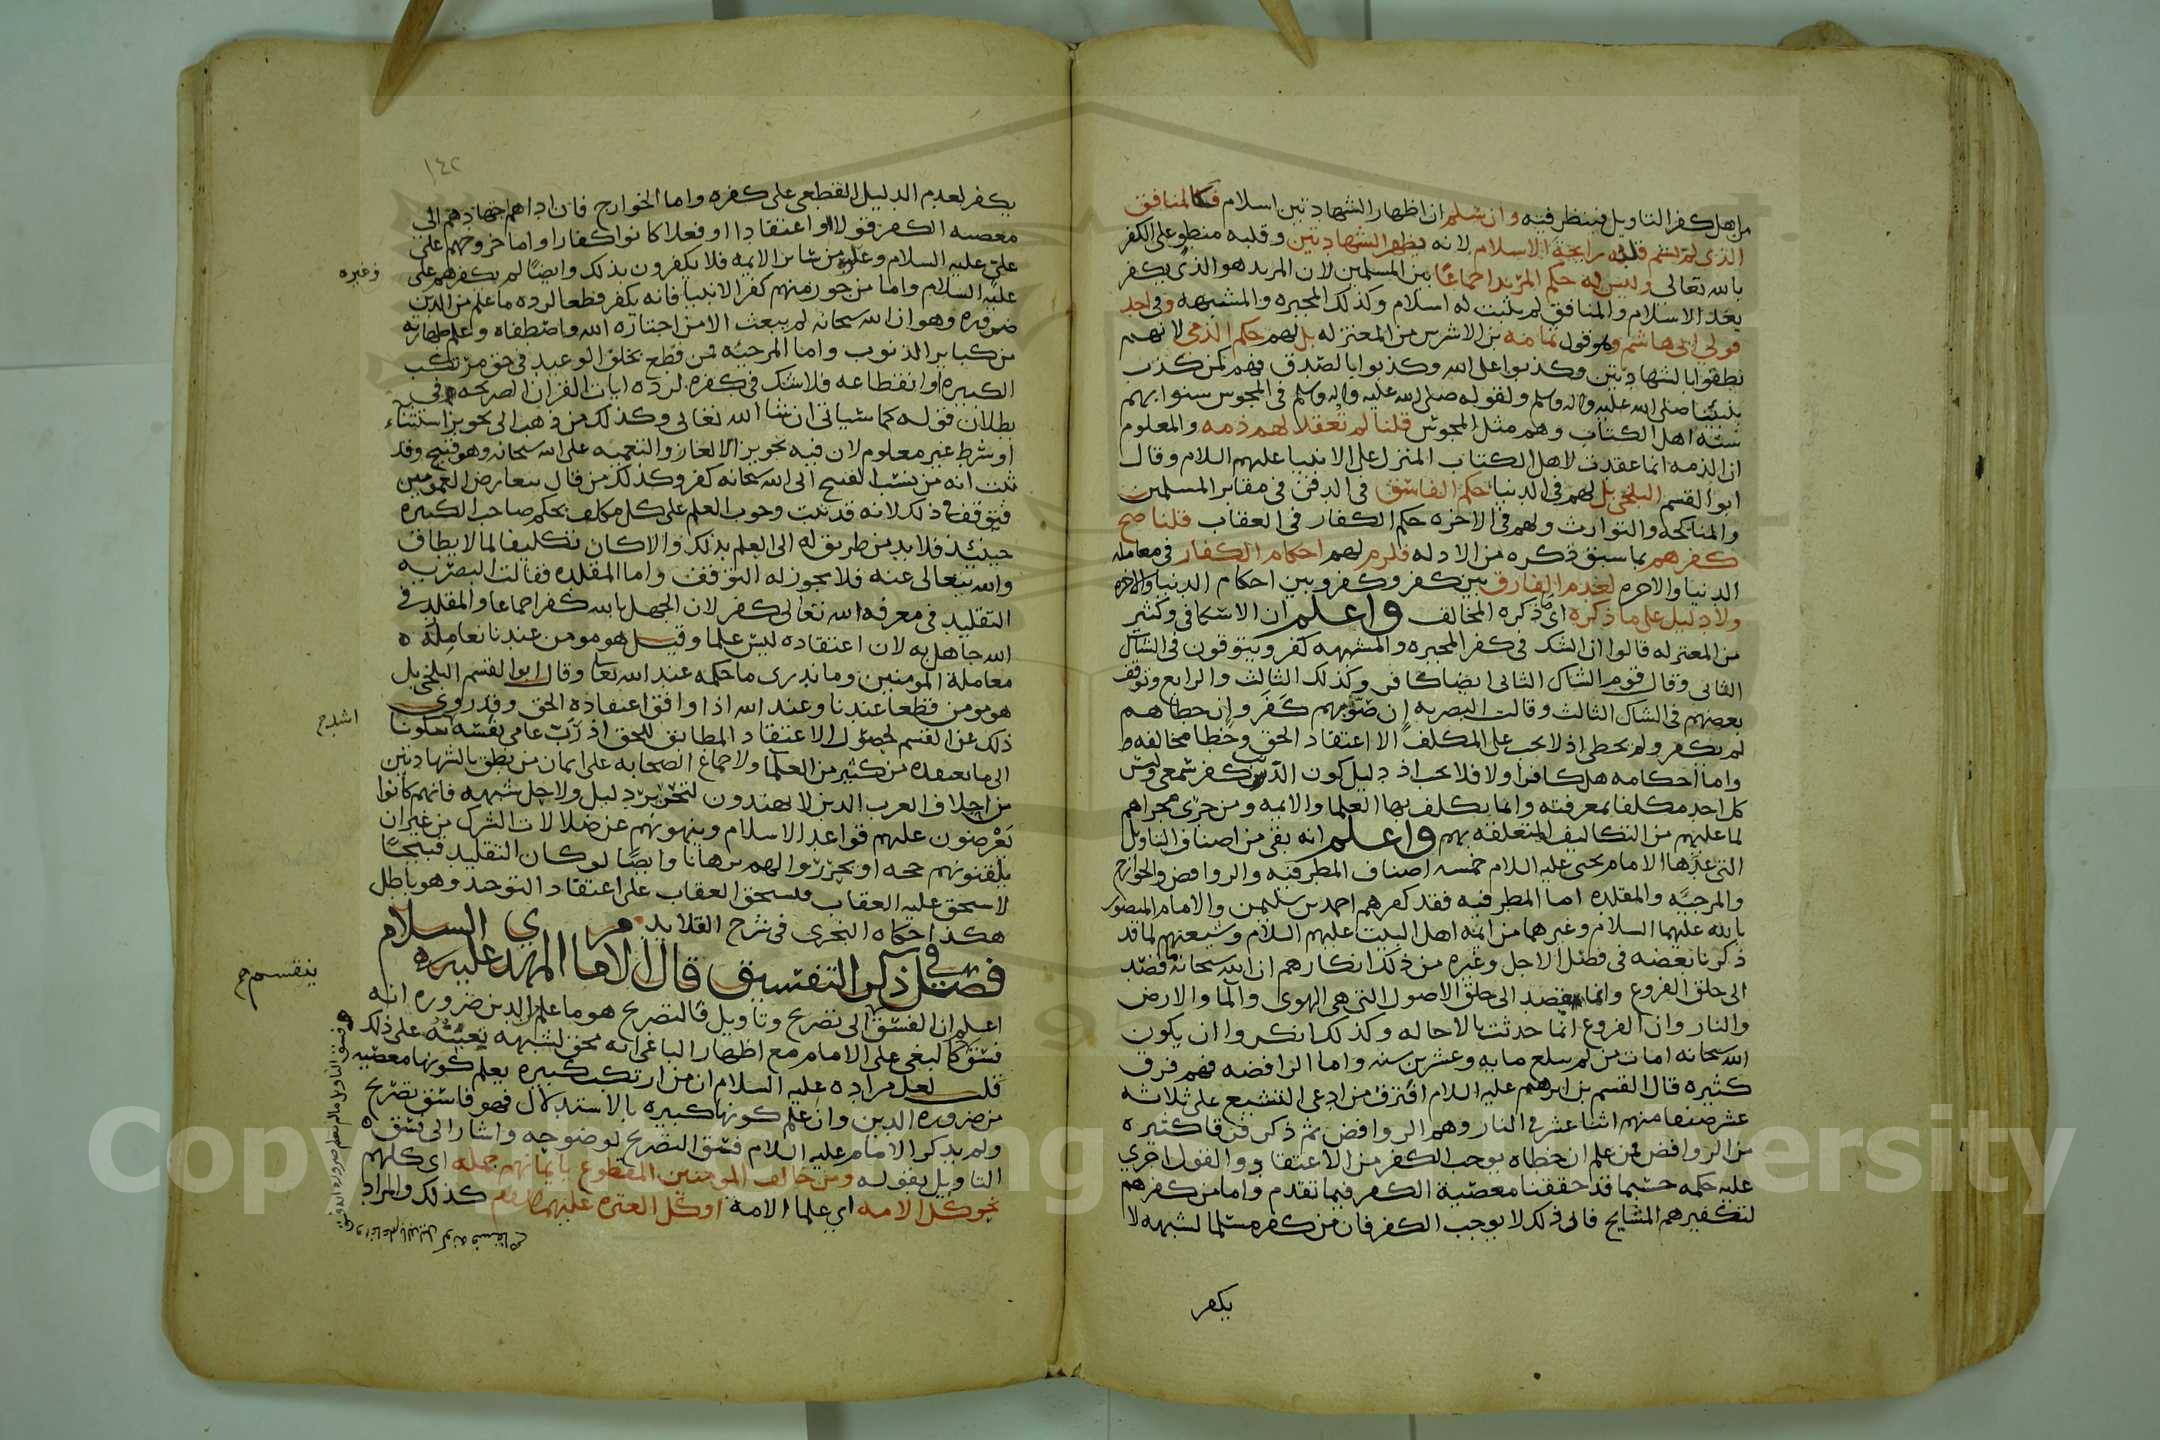 من اهل كفر التاويل فينظر فيه وان سلم ان اظهار الشهادتين اسلام فكالمنافق
الذي لم يشم قلبه رايحة الاسلام لانه يظهر الشهادتين وقلبه منطو على الكفر
بالله تعالى وليس له حكم المرتد اجماعا بين المسلمين لان المرتد هو الذي يكفر
بعد الاسلام والمنافق لم يثبت له اسلام وكذلك المجبره والمشبهه وفي احد
قولي ابي هاشم وهو قول ثمامه بن الاشرس من المعتزله بل لهم حكم الذمي لانهم
نطقوا بالشهادتين وكذبوا على الله وكذبوا بالصدق فهم كمن كذب
بنبينا صلى الله عليه واله وسلم ولقوله صلى الله عليه واله وسلم في المجوس سنوا بهم
سنه اهل الكتاب وهم مثل المجوس قلنا لم تعقد لهم ذمه والمعلوم
ان الذمه انما عقدت لاهل الكتاب المنزل على الانبيا عليهم السلام وقال
ابو القسم البلخي بل لهم في الدنيا حكم الفاسق في الدفن في مقابر المسلمين
والمناكحه والتوارث ولهم في الاخره حكم الكفار في العقاب قلنا صح
كفرهم بما سبق ذكره من الادله فلزم لهم احكام الكفار في معامله
الدنيا والاخره لعدم الفارق بين كفر وكفر وبين احكام الدنيا والاخره
ولا دليل على ما ذكره اي ما ذكره المخالف واعلم ان الاسكافي وكثير
من المعتزله قالوا ان الشك في كفر المجبره والمشبهه كفر ويتوقفون في الشاك
الثاني وقال قوم الشاك الثاني ايضا كافر وكذلك الثالث والرابع وتوقف
بعضهم في الشاك الثالث وقالت البصريه ان صوبهم كفر وان خطاهم
لم يكفر ولم يخطي اذ لا يجب على المكلف الا اعتقاد الحق وخطا مخالفه
واما احكامه هل كافر او لا فلا يجب اذ دليل كون الذنب كفر سمعي وليس
كل احد مكلفا بمعرفته وانما يكلف بها العلما والايمه ومن جرى مجراهم
لما عليهم من التكاليف المتعلقه بهم واعلم انه بقي من اصناف التاويل
التي عدها الامام يحيى عليه السلام خمسه اصناف المطرفيه والروافض والخوارج
والمرجيه والمقلده اما المطرفيه فقد كفرهم احمد بن سليمن والامام المنصور
بالله عليهما السلام وغيرهما من ايمه اهل البيت عليهم السلام وشيعتهم لما قد
ذكرنا بعضه في فصل الاجل وغيره من ذلك انكارهم ان الله سحانه قصد
الى خلق الفروع وانما قصد الى خلق الاصول التي هي الهوى والما والارض
والنار وان الفروع انما حدثت بالاحاله وكذلك انكروا ان يكون
الله سحانه امات من لم يبلع مايه وعشرين سنه واما الرافضه فهم فرق
كثيره قال القسم بن ابرهيم عليه السلام افترق من ادعى التشيع على ثلاثه
عشر صنفا منهم اثنا عشر في النار وهم الروافض ثم ذكر فرقا كثيره
من الروافض فمن علم ان خطاه يوجب الكفر من الاعتقاد والقول اجري
عليه حكمه حسبما قد حققنا معصية الكفر فيما تقدم واما من كفرهم
لتكفيرهم المشايح فان ذلك لا يوجب الكفر فان من كفر مسلما لشبهه لا
يكفر
١٤٢
يكفر لعدم الدليل القطعي على كفره واما الخوارج فان اداهم اجتهادهم الى
معصيه الكفر قولا او اعتقادا او فعلا كانوا كفارا واما خروجهم على
علي عليه السلام وعلى من سائر الايمه فلا يكفرون بذلك وايضا لم يكفرهم علي
وغيره
عليه السلام واما من جوز منهم كفر الانبيا فانه يكفر قطعا لرده ما علم من الدين
ضروره وهو ان الله سحانه لم يبعث الا من اجتازه الله واصطفاه وعلم طهارته
من كبائر الذنوب واما المرجيه فمن قطع بخلف الوعيد في حق مرتكب
الكبيره او انقطاعه فلا شك في كفره لرده ايات القران الصريحه في
بطلان قوله كما سياتي ان شا الله تعالى وكذلك من ذهب الى تجويز استثناء
او شرط غير معلوم لان فيه تجويز الالغاز والتعميه على الله سحانه وهو قبيح وقد
ثبت انه من نسب القبيح الى الله سحانه كفر وكذلك من قال بتعارض العمومين
فيتوقف في ذلك لانه قد ثبت وجوب العلم على كل مكلف بحكم صاحب الكبيره
حينئذ فلا بد من طريق له الى العلم بذلك والا كان تكليفا لما لا يطاق
والله يتعالى عنه فلا يجوز له التوقف واما المقلده فقالت البصريه
التقليد في معرفه الله تعالى كفر لان الجهل بالله كفر اجماعا والمقلد في
الله جاهل به لان اعتقاده ليس علما وقيل هو مومن عندنا نعامله
معاملة المومنين وما ندري ما حكمه عند الله تعا وقال ابو القسم البلخي بل
هو مومن قطعا عندنا وعند الله اذا وافق اعتقاده الحق وقد روي
ذلك عن القسم لحصول الاعتقاد المطابق للحق اذ رب عامي نفسه سكونا
اشد ح
الى ما يعتقده من كثير من العلما ولاجماع الصحابه على ايمان من نطق بالشهادتين
من اجلاف العرب الذين لا يهتدون لتحرير دليل ولا حل شبهه فانهم كانوا
يعرضون عليهم قواعد الاسلام وينهونهم عن ضلالات الشرك من غير ان
يلقنونهم حجه او يحرروا لهم برهانا وايضا لو كان التقليد قبيحا
لاستحق عليه العقاب فيستحق العقاب على اعتقاد التوحيد وهو باطل
هكذا حكاه النجري في شرح القلايد
فصل في ذكر التفسيق قال الامام المهدي عليه السلام
اعلم ان الفسق الى تصريح وتاويل فالتصريح هو ما علم من الدين ضروره انه
ينقسم ح
فسق كالبغي على الامام مع اظهار الباغي انه محق لشبهه على ذلك
قلت لعل مراده عليه السلام ان من ارتكب كبيره يعلم كونها معصيه
من ضروره الدين وان علم كونها كبيره بالاستدلال فهو فاسق تصريح
ولم يذكر الامام عليه السلام فسق التصريح لوضوحه واشار الى فسق
التاويل بقوله ومن خالف المومنين المقطوع بايمانهم جمله اي كلهم
نحو كل الامه اي علما الامه او كل العتره عليهم السلام كذلك والمراد